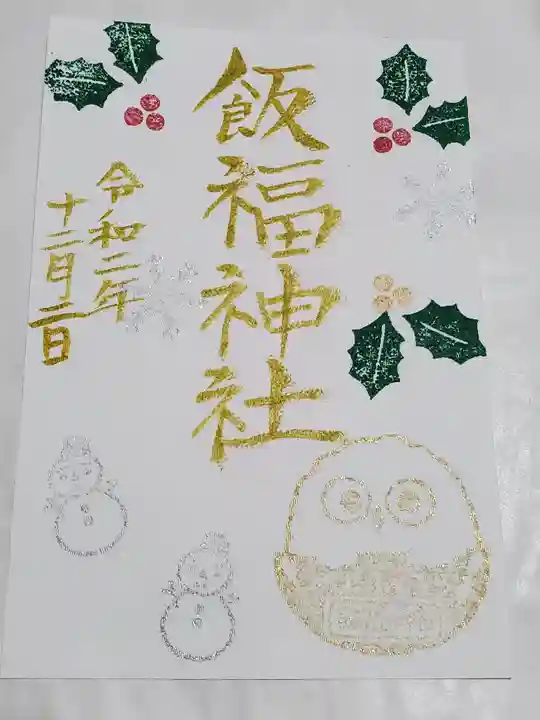 飯福神社
令和二年
十二月二日